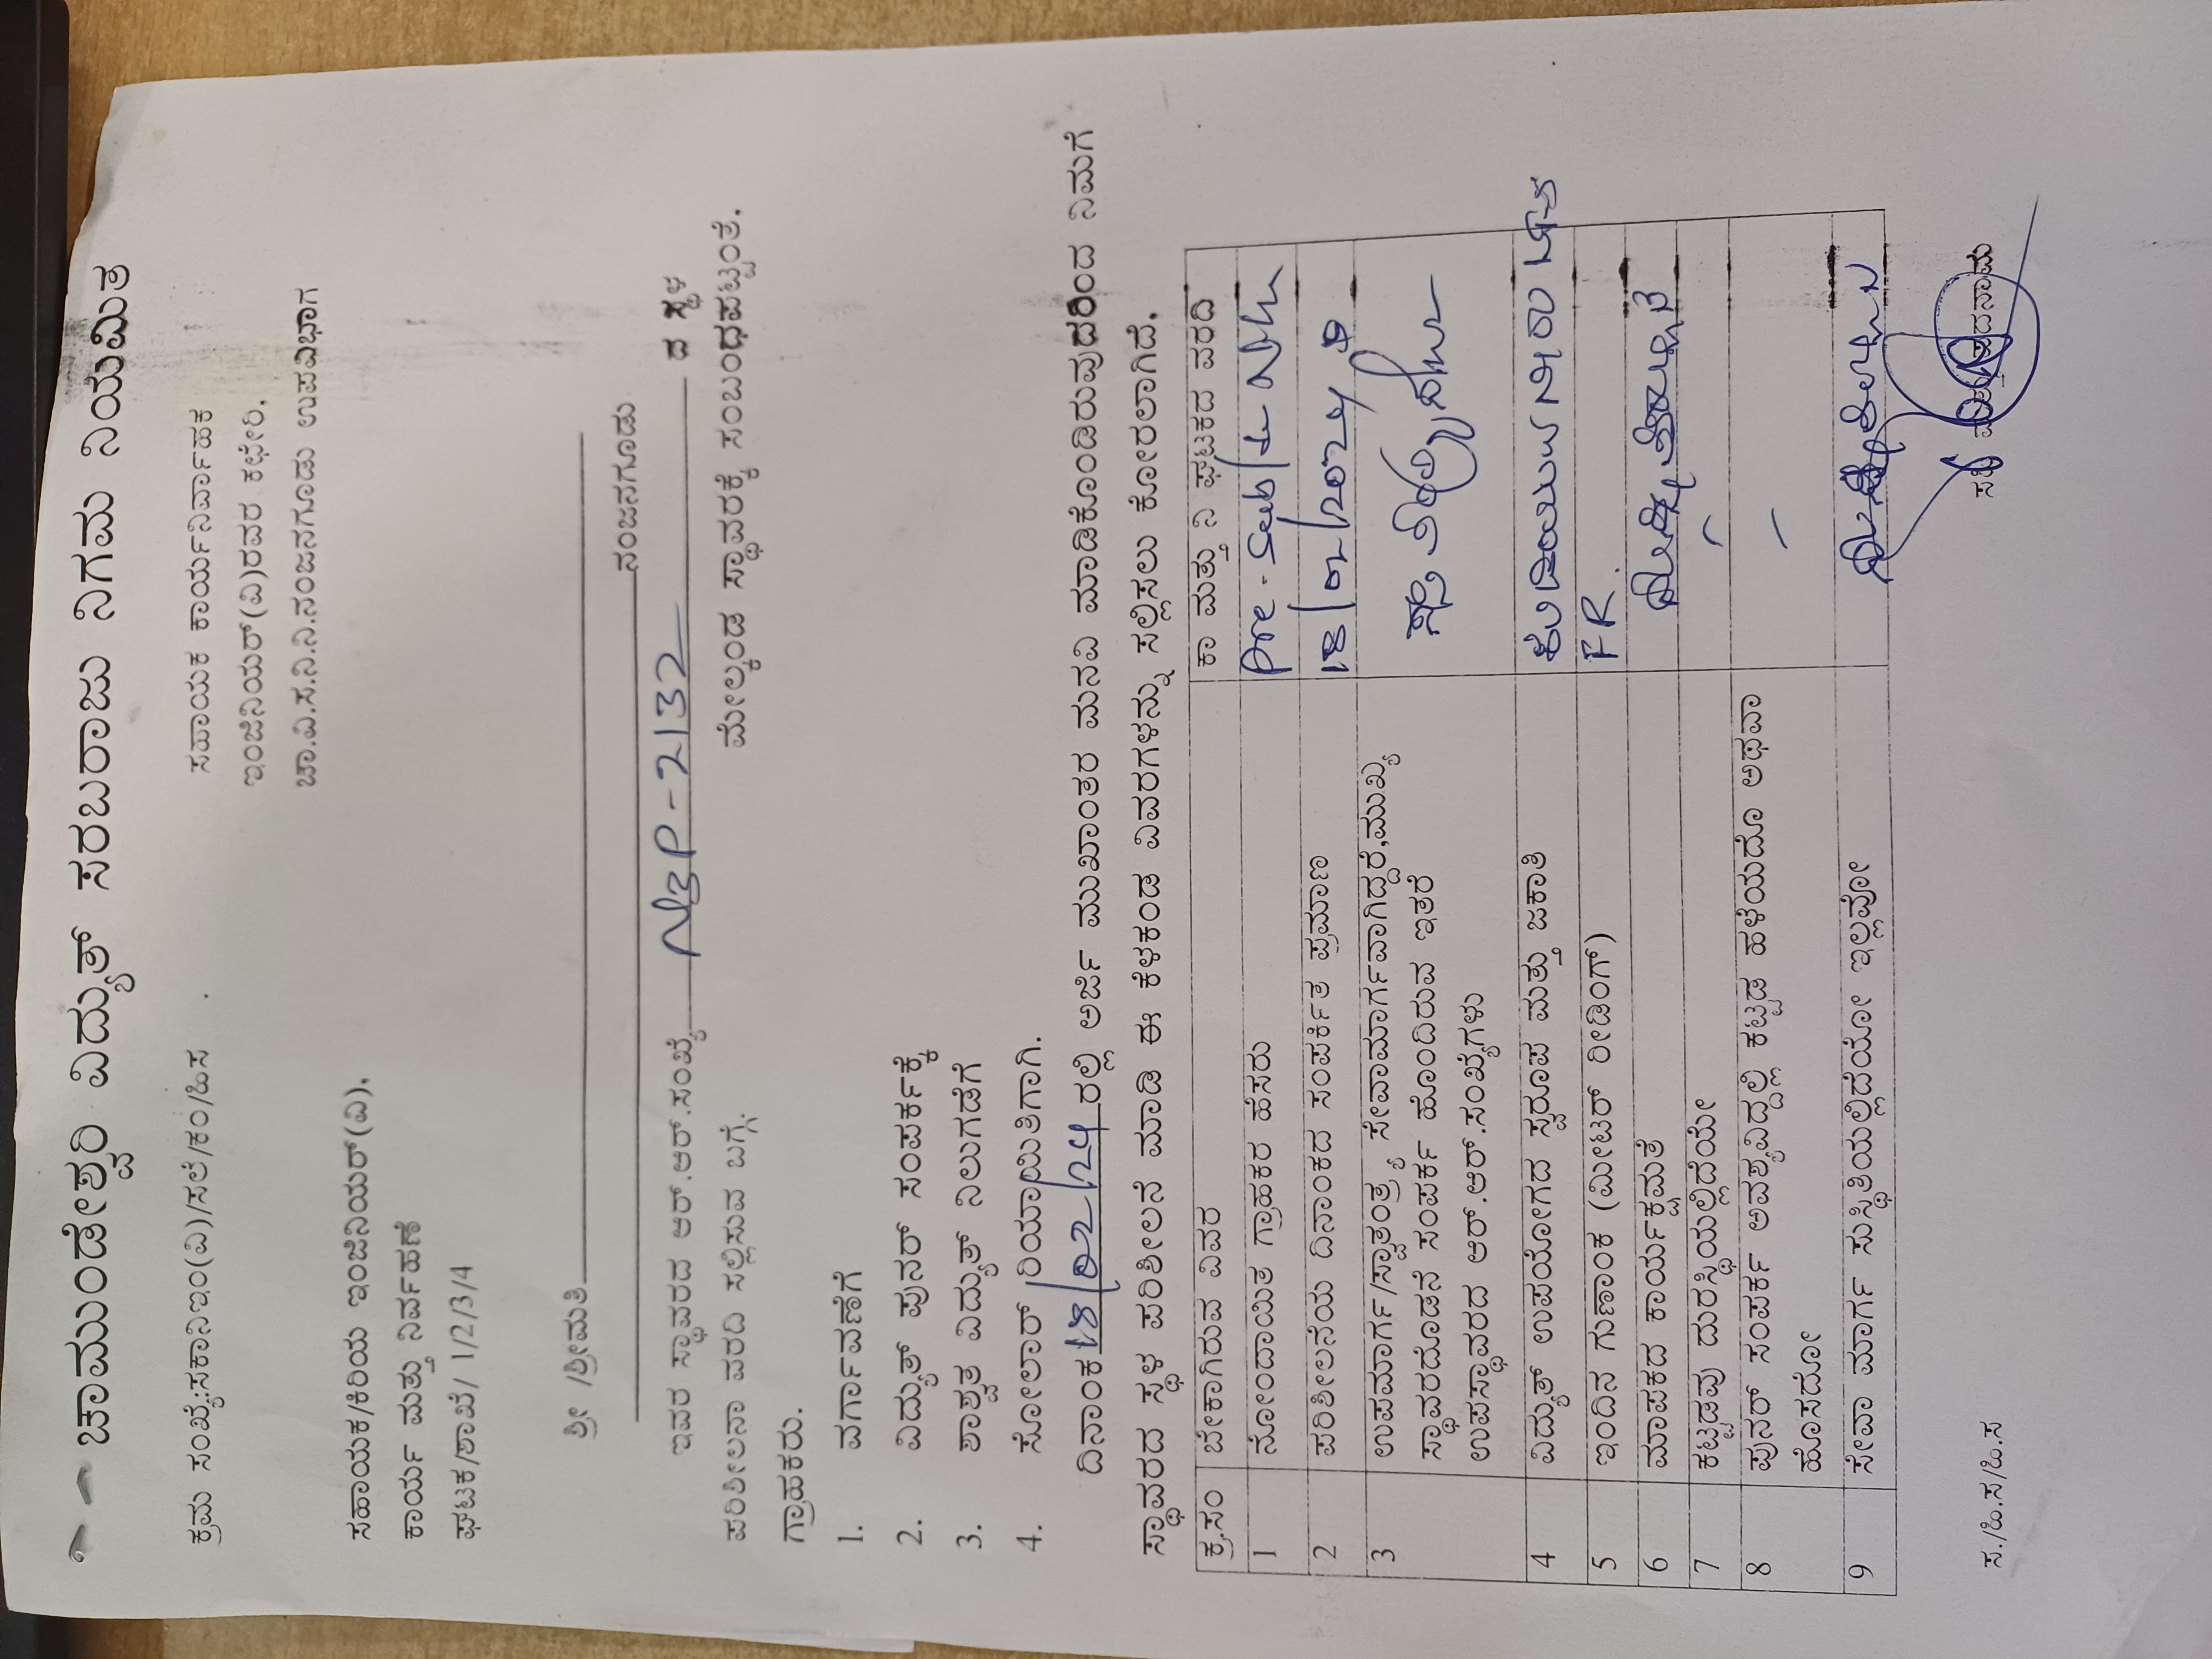 ಚಾಮುಂಡೇಶ್ವರಿ ವಿದ್ಯುತ್ ಸರಬರಾಜು ನಿಗಮ ನಿಯಮಿತ
ಕ್ರಮ ಸಂಖ್ಯೆ:ಸಕಾನಿಇಂ(ವಿ)/ಸಲೆ/ಕಂ/ಹಿಸ
ಸಹಾಯಕ ಕಾರ್ಯನಿರ್ವಾಹಕ
ಇಂಜಿನಿಯರ್(ವಿ)ರವರ ಕಛೇರಿ,
ಚಾ.ವಿ.ಸ.ನಿ.ನಿ.ನಂಜನಗೂಡು ಉಪವಿಭಾಗ
ಸಹಾಯಕ/ಕಿರಿಯ ಇಂಜಿನಿಯರ್(ವಿ),
ಕಾರ್ಯ ಮತ್ತು ನಿರ್ವಹಣೆ
ಘಟಕ/ಶಾಖೆ/ 1/2/3/4
ಶ್ರೀ /ಶ್ರೀಮತಿ
ನಂಜನಗೂಡು
ಇವರ ಸ್ಥಾವರದ ಆರ್.ಆರ್.ಸಂಖ್ಯೆ N3P-2132 ದ ಸ್ಥಳ
ಪರಿಶೀಲನಾ ವರದಿ ಸಲ್ಲಿಸುವ ಬಗ್ಗೆ. ಮೇಲ್ಕಂಡ ಸ್ಥಾವರಕ್ಕೆ ಸಂಬಂಧಪಟ್ಟಂತೆ,
ಗ್ರಾಹಕರು.
1. ವರ್ಗಾವಣೆಗೆ
2. ವಿದ್ಯುತ್ ಪುನರ್ ಸಂಪರ್ಕಕ್ಕೆ
3. ಶಾಶ್ವತ ವಿದ್ಯುತ್ ನಿಲುಗಡೆಗೆ
4. ಸೋಲಾರ್ ರಿಯಾಯಿತಿಗಾಗಿ.
ದಿನಾಂಕ 18/02/24 ರಲ್ಲಿ ಅರ್ಜಿ ಮುಖಾಂತರ ಮನವಿ ಮಾಡಿಕೊಂಡಿರುವುದರಿಂದ ನಿಮಗೆ
ಸ್ಥಾವರದ ಸ್ಥಳ ಪರಿಶೀಲನೆ ಮಾಡಿ ಈ ಕೆಳಕಂಡ ವಿವರಗಳನ್ನು ಸಲ್ಲಿಸಲು ಕೋರಲಾಗಿದೆ.
ಕ್ರ.ಸಂ ಬೇಕಾಗಿರುವ ವಿವರ ಕಾ ಮತ್ತು ನಿ ಘಟಕದ ವರದಿ
1 ನೋಂದಾಯಿತ ಗ್ರಾಹಕರ ಹೆಸರು
2 ಪರಿಶೀಲನೆಯ ದಿನಾಂಕದ ಸಂಪರ್ಕಿತ ಪ್ರಮಾಣ 18/02/2024
3 ಉಪಮಾರ್ಗ/ಸ್ವಾತಂತ್ರ್ಯ ಸೇವಾಮಾರ್ಗವಾಗಿದ್ದರೆ,ಮುಖ್ಯ
ಸ್ಥಾವರದೊಡನೆ ಸಂಪರ್ಕ ಹೊಂದಿರುವ ಇತರೆ
ಉಪಸ್ಥಾವರದ ಆರ್.ಆರ್.ಸಂಖ್ಯೆಗಳು
4 ವಿದ್ಯುತ್ ಉಪಯೋಗದ ಸ್ವರೂಪ ಮತ್ತು ಜಕಾತಿ
5 ಇಂದಿನ ಗುಣಾಂಕ (ಮೀಟರ್ ರೀಡಿಂಗ್) FR.
6 ಮಾಪಕದ ಕಾರ್ಯಕ್ಷಮತೆ
7 ಕಟ್ಟಡವು ದುರಸ್ಥಿಯಲ್ಲಿದೆಯೇ –
8 ಪುನರ್ ಸಂಪರ್ಕ ಅವಶ್ಯವಿದ್ದಲ್ಲಿ ಕಟ್ಟಡ ಹಳೆಯದೊ ಅಥವಾ –
ಹೊಸದೋ
9 ಸೇವಾ ಮಾರ್ಗ ಸುಸ್ಥಿತಿಯಲ್ಲಿದೆಯೋ ಇಲ್ಲವೋ
ಸ./ಹಿ.ಸ/ಹಿ.ಸ